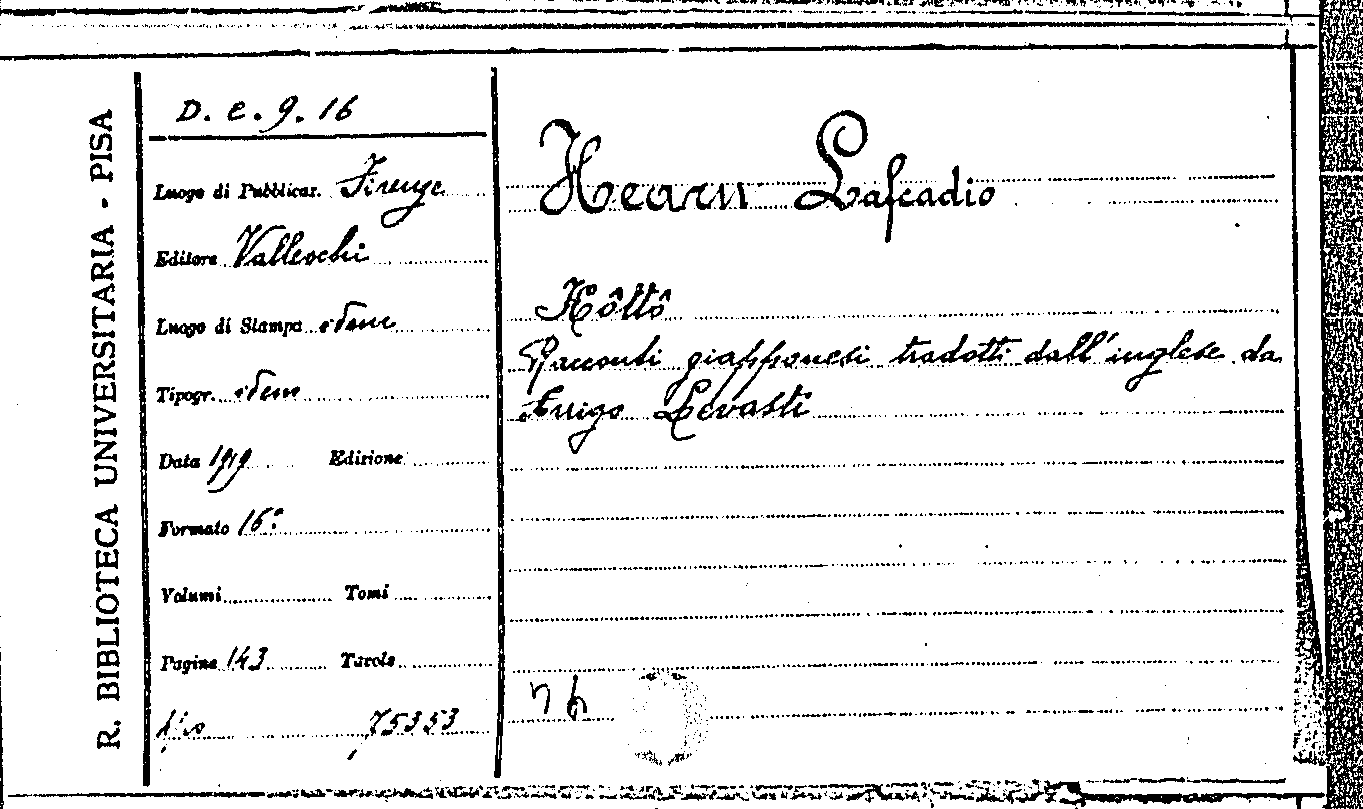 R. BIBLIOTECA UNIVERSITARIA - PISA
D. e. 9. 16
Luogo di Pubblicaz. Firenze
Editore Vallecchi
Luogo di Stampa idem
Tipogr. idem
Data 1919 Edizione
Formato 16°
Volumi Tomi
Pagine 143 Tavole
75353
Hearn Lafcadio
Kôttô
Racconti giapponesi tradotti dall'inglese da
Arrigo Levasti